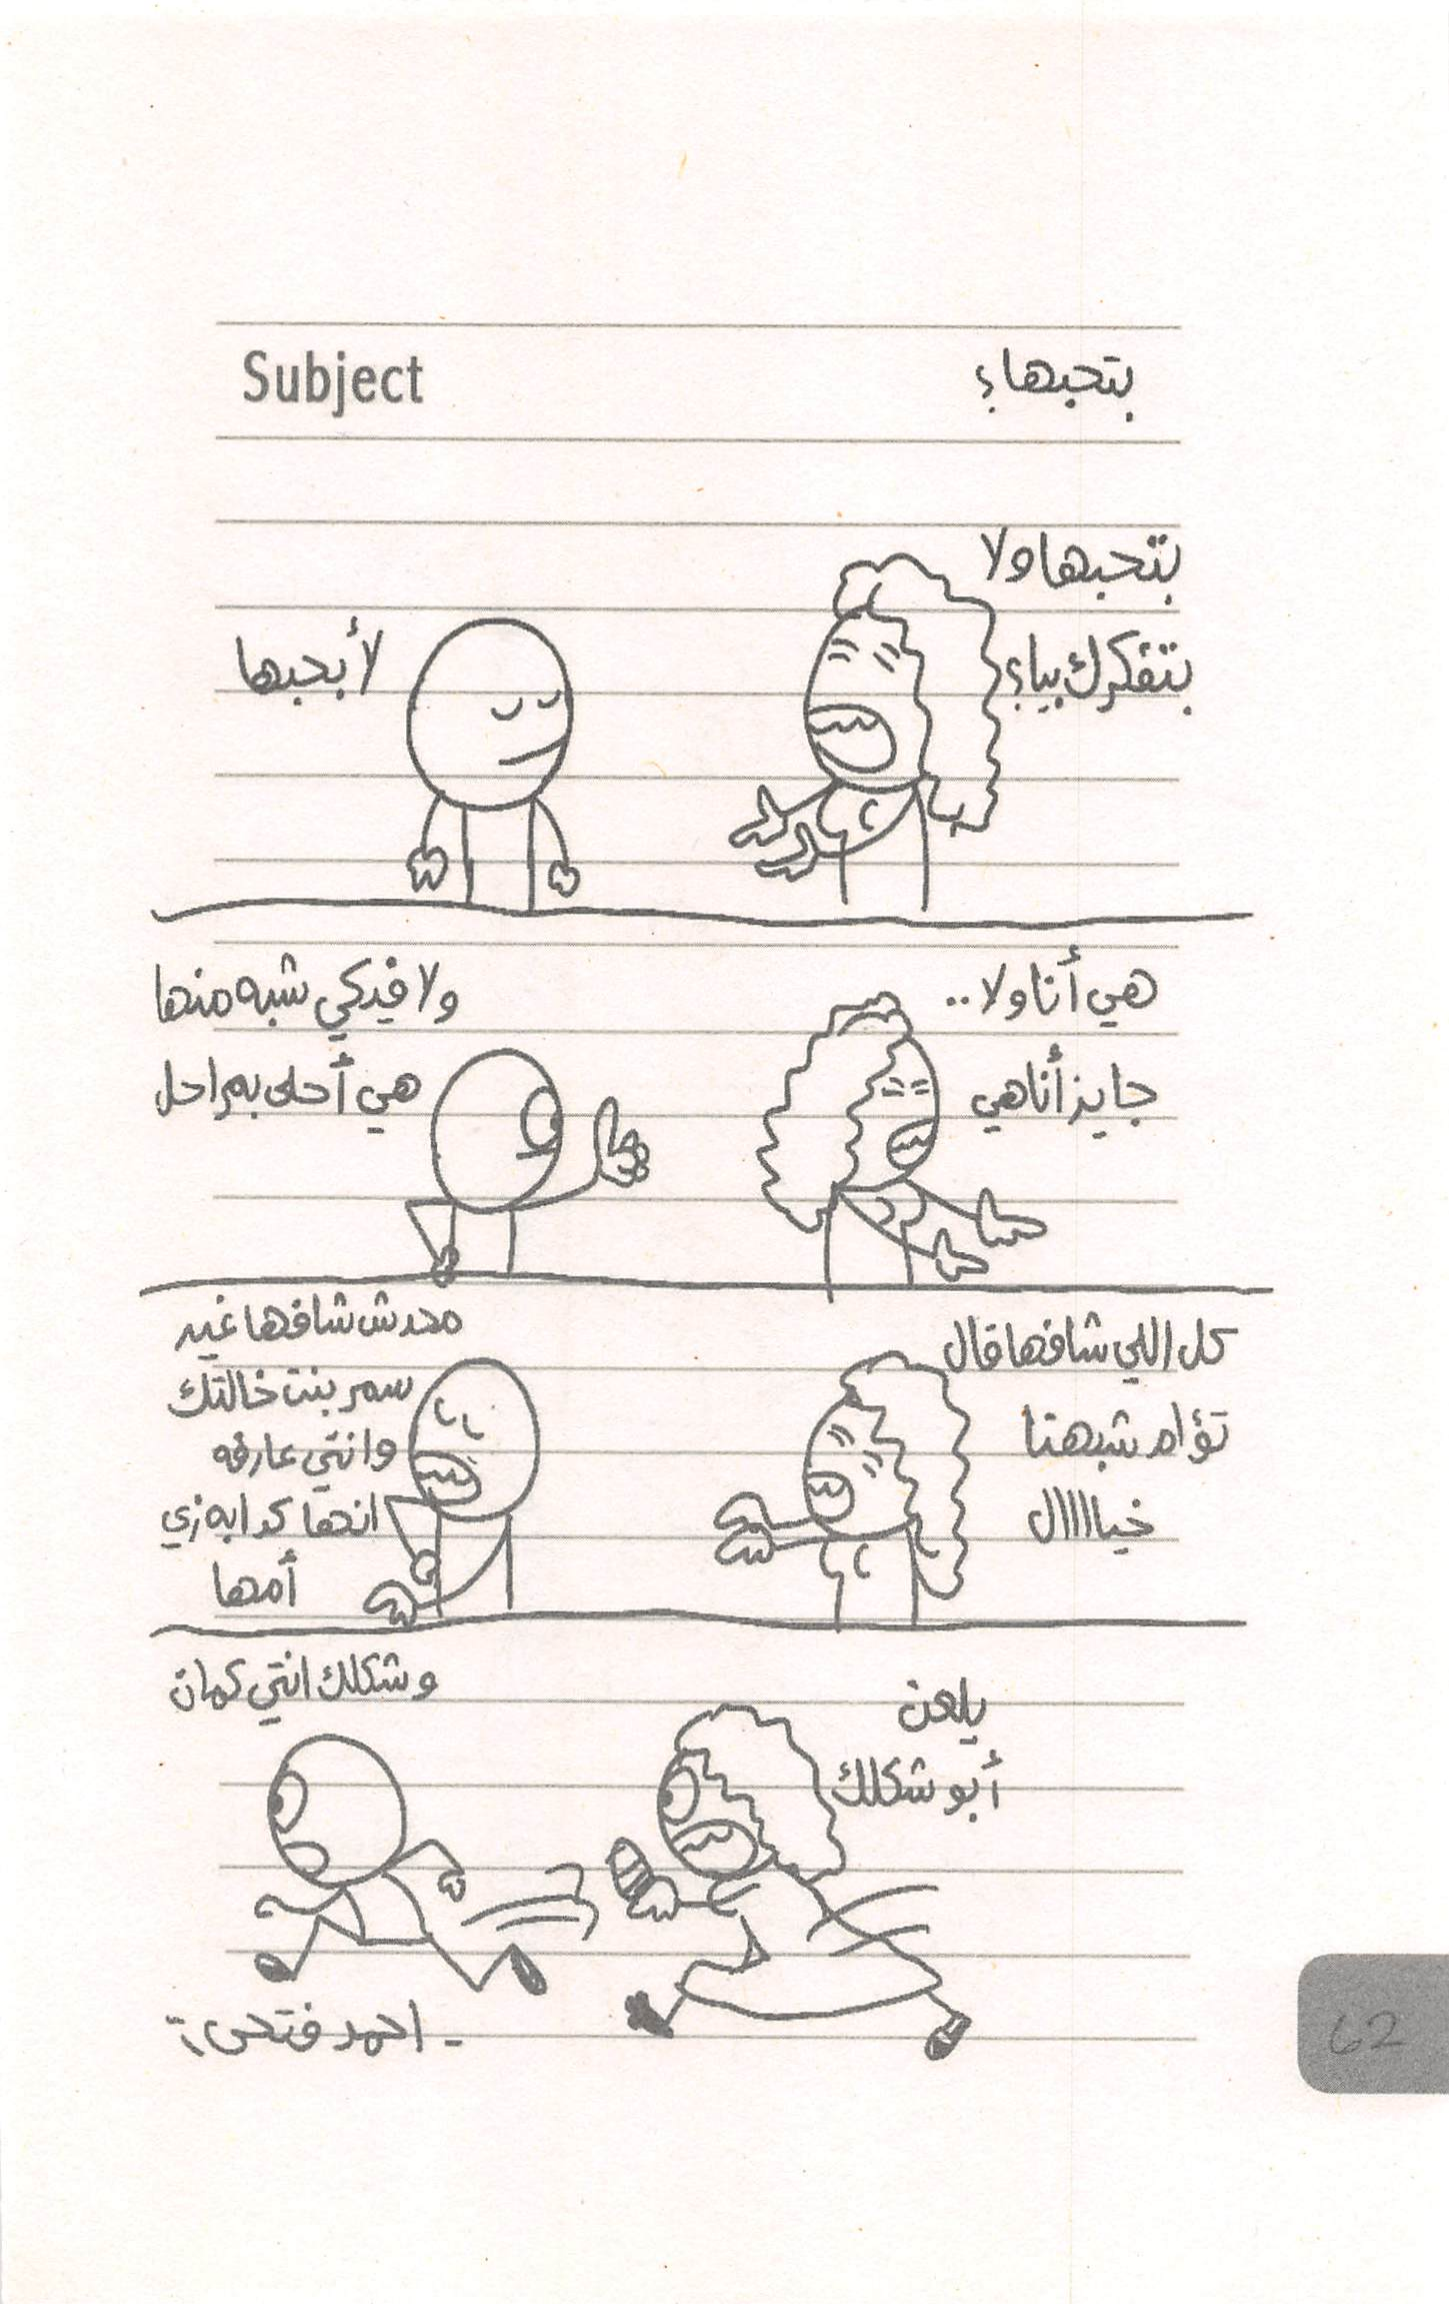 Subject
بتحبها؟
بتحبها ولا
بتفكرك بيا؟
لأ بحبها
هي أنا ولا..
جايز أنا هي
ولا فيكي شبه منها
هي أحلى بمراحل
كل اللي شافها قال
تؤام شبهنا
خياااال
محدش شافها غير
سمر بنت خالتك
وانتي عارفه
انها كدابه زي
أمها
يلعن
أبو شكلك
وشكلك انتي كمان
- احمد فتحى :
62